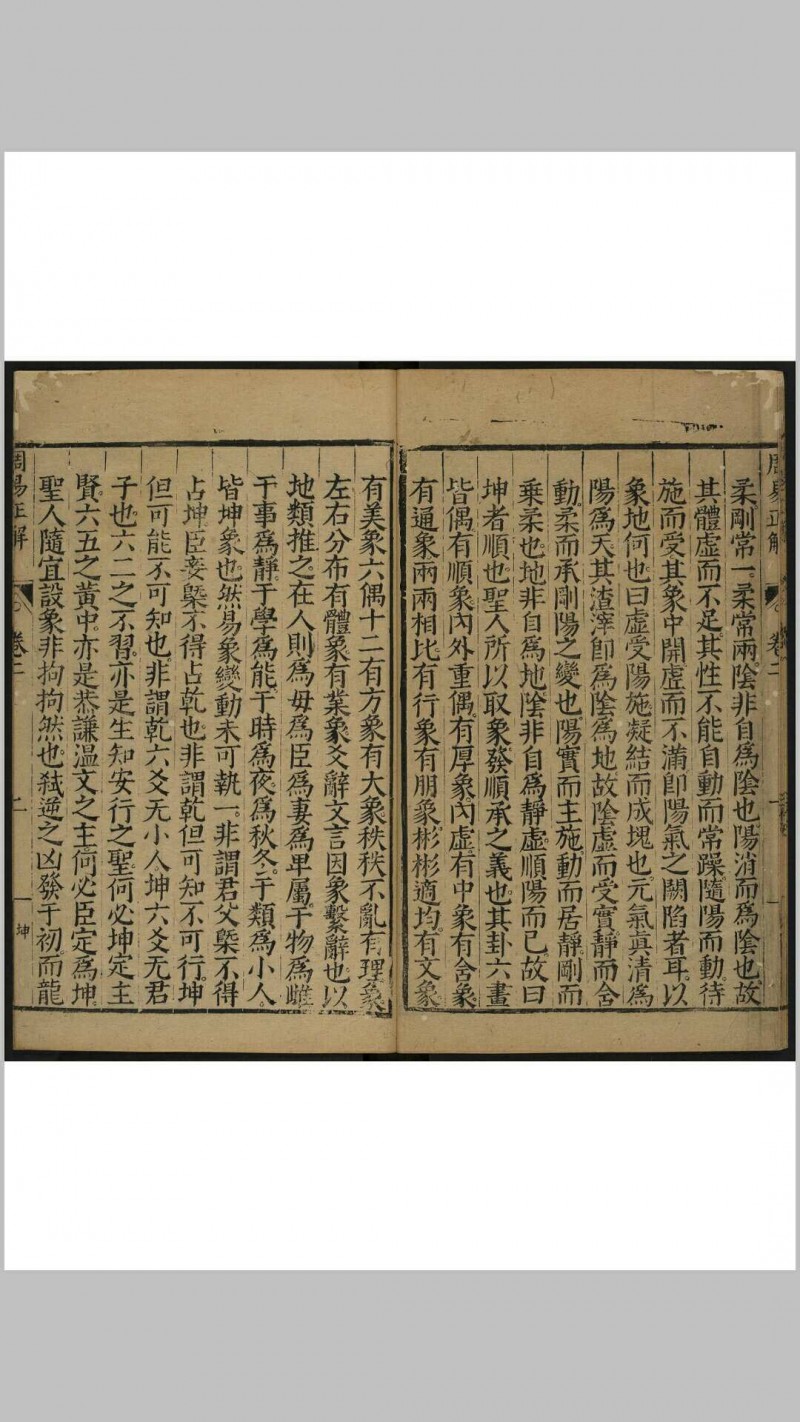 周易正解 卷二 一
柔剛常一。柔常兩陰非自爲陰也陽消而爲陰也。故
其體虛而不足。其性不能自動而常躁隨陽而動。待
施而受其象中開虛而不滿卽陽氣之闕陷者耳。以
象地何也曰虛受陽施凝結而成塊也。元氣眞清爲
陽爲天其渣滓卽爲陰爲地故陰虛而受實。靜而含
動。柔而承剛陽之變也。陽實而主施動而居靜。剛而
乗柔也。地非自爲地陰非自爲靜虛順陽而已。故曰
坤者順也。聖人所以取象發順承之義也。其卦六畫
皆偶有順象內外重偶。有厚象內虛有中象有含象
有通象兩兩相比有行象有朋象。彬彬適均。有文象
有美象六偶十二有方象有大象秩秩不亂有理象
左右分布有體象有業象爻辭文言因象繫辭也。以
地類推之。在人則爲母爲臣爲妻爲卑屬。于物爲雌
于事爲靜。于學爲能。于時爲夜。爲秋冬。于類爲小人。
皆坤象也。然易象變動未可執一。非謂君父槩不得
占坤臣妾槩不得占乾也。非謂乾但可知不可行。坤
但可能不可知也。非謂乾六爻无小人坤六爻无君
子也。六二之不習。亦是生知安行之聖。何必坤定主
賢。六五之黃中。亦是恭謙溫文之主。何必臣定爲坤
聖人隨宜設象。非拘拘然也。弑逆之凶發于初而龍
周易正解 卷二 二 坤